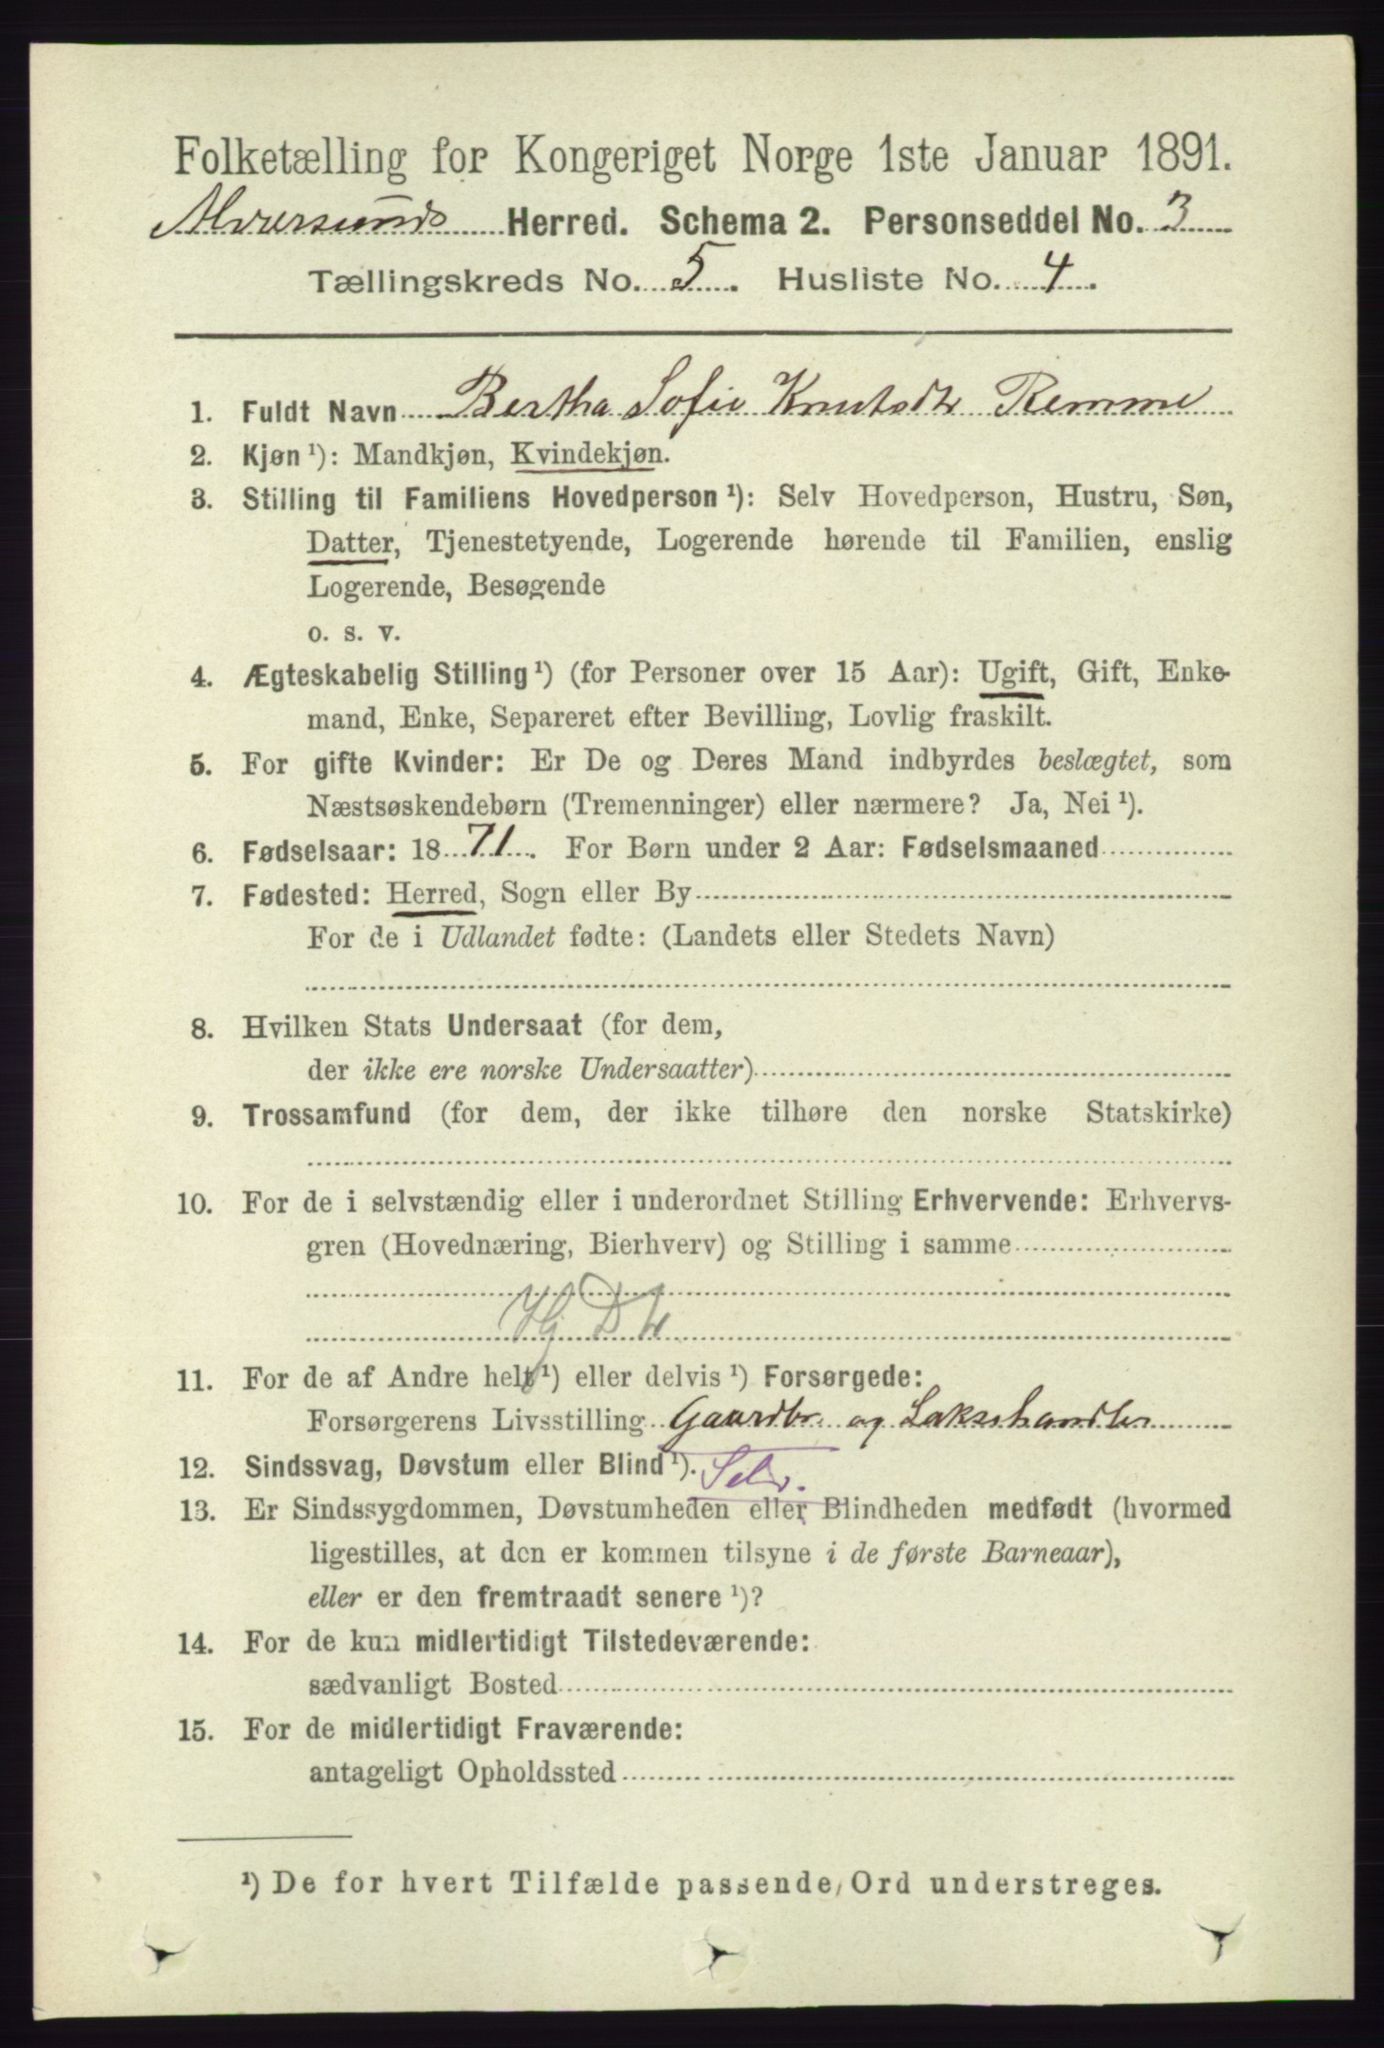 Folketælling for Kongeriget Norge 1ste Januar 1891.
Alversunds Herred. Schema 2. Personseddel No. 3
Tællingskreds No. 5. Husliste No. 4.
1. Fuldt Navn Bertha Sofie Knutsdtr Remme
2. Kjøn ¹): Mandkjøn, Kvindekjøn.
3. Stilling til Familiens Hovedperson ¹): Selv Hovedperson, Hustru, Søn,
Datter, Tjenestetyende, Logerende hørende til Familien, enslig
Logerende, Besøgende
o. s. v.
4. Ægteskabelig Stilling ¹) (for Personer over 15 Aar): Ugift, Gift, Enke-
mand, Enke, Separeret efter Bevilling, Lovlig fraskilt.
5. For gifte Kvinder: Er De og Deres Mand indbyrdes beslægtet, som
Næstsøskendebørn (Tremenninger) eller nærmere? Ja, Nei ¹).
6. Fødselsaar: 1871. For Børn under 2 Aar: Fødselsmaaned
7. Fødested: Herred, Sogn eller By
For de i Udlandet fødte: (Landets eller Stedets Navn)
8. Hvilken Stats Undersaat (for dem,
der ikke ere norske Undersaatter)
9. Trossamfund (for dem, der ikke tilhøre den norske Statskirke)
10. For de i selvstændig eller i underordnet Stilling Erhvervende: Erhvervs-
gren (Hovednæring, Bierhverv) og Stilling i samme
11. For de af Andre helt ¹) eller delvis ¹) Forsørgede:
Forsørgerens Livsstilling Gaardbr. og Laksehandler
12. Sindssvag, Døvstum eller Blind ¹). Selv.
13. Er Sindssygdommen, Døvstumheden eller Blindheden medfødt (hvormed
ligestilles, at den er kommen tilsyne i de første Barneaar),
eller er den fremtraadt senere ¹)?
14. For de kun midlertidigt Tilstedeværende:
sædvanligt Bosted
15. For de midlertidigt Fraværende:
antageligt Opholdssted
¹) De for hvert Tilfælde passende Ord understreges.